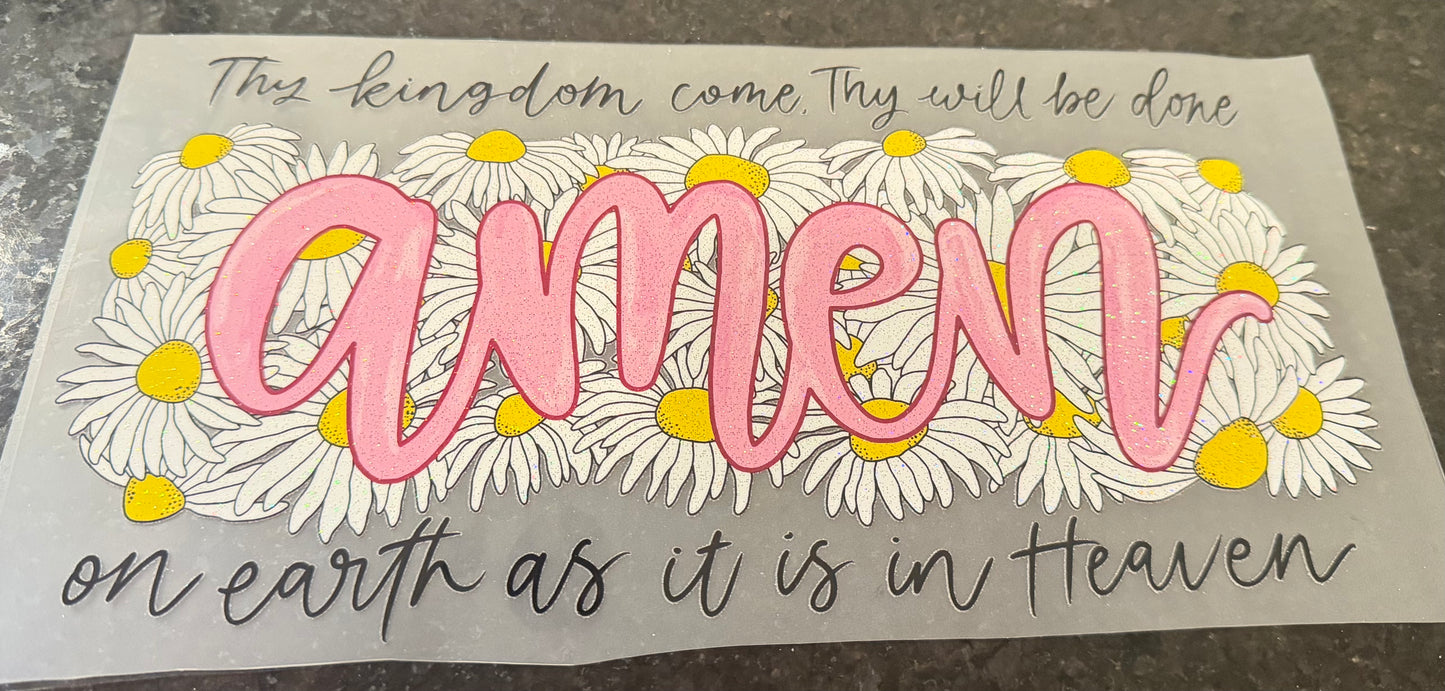 Thy kingdom come, Thy will be done
amen
on earth as it is in Heaven